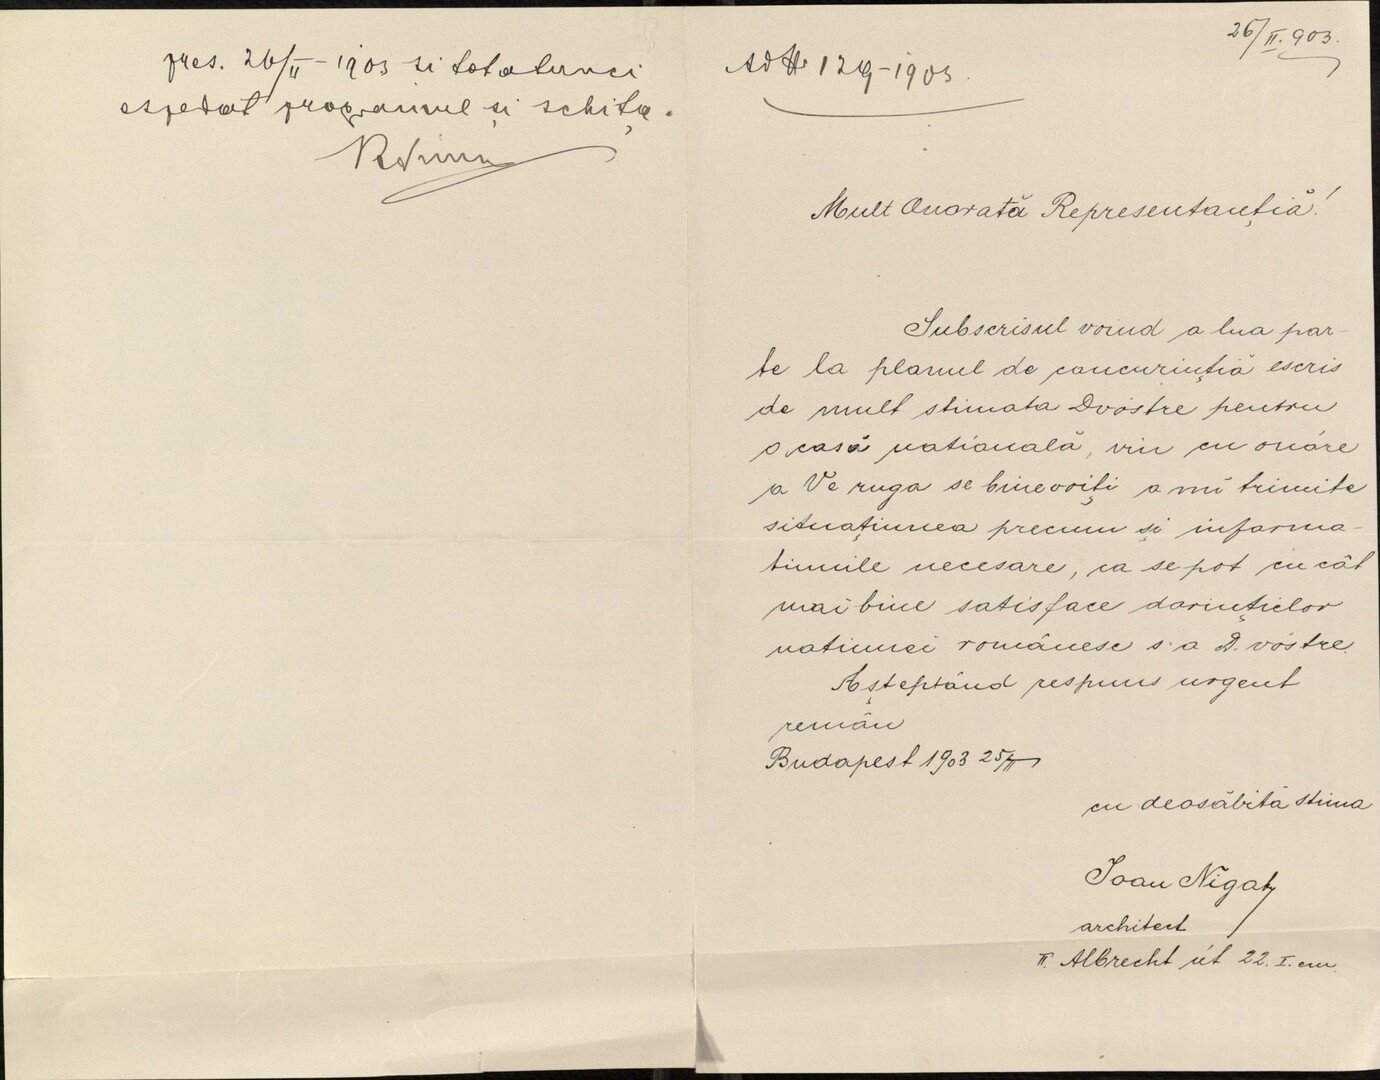 pres. 26/II – 1903 si totatunci
espedat programul și schița.
26/II. 903.
Ad № 129–1903.
Mult Onorată Representanția!
Subscrisul voind a lua par-
te la planul de concurinția escris
de mult stimata Dvóstre pentru
o casă natională, vin cu onóre
a Ve ruga se binevoiți a mi trimite
situațiunea precum și informa-
tiunile necesare, ca se pot cu cât
mai bine satisface dorințielor
natiunei românesc s. a D. vóstre.
Așteptând respuns urgent
remân
Budapest 1903 25/II
cu deosăbită stima
Ioan Nigaty
architect
II. Albrecht út 22. I. em.